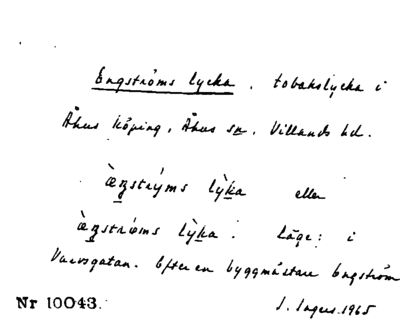 Engströms lycka. tobakslycka i
Åhus köping, Åhus sn, Villands hd.
æ̀ŋstrýms lỳka eller
æ̀ŋstrøms lỳka. Läge: i
Varvsgatan. Efter en byggmästare Engström
Nr 10043. I. Ingers 1965